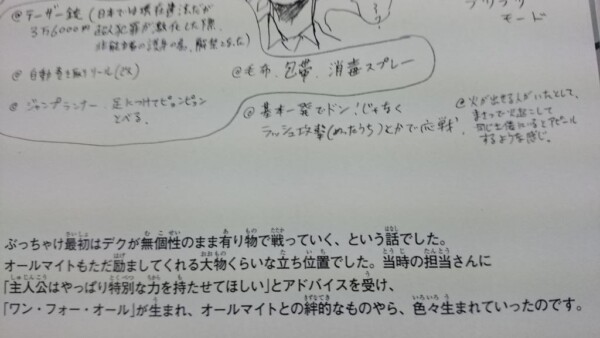 @ テーザー銃(日本では現在違法だが
3万6000円 超人犯罪が激化した際、
@ 自動巻き取りリール(改)
@ 毛布、包帯、消毒スプレー
@ ジャンプランナー 足につけてピョンピョン
とべる。
@ 基本一発でドン!じゃなく
ラッシュ攻撃(めったうち)とかで応戦
@ 火が出せる人がいたとして、
するような感じ。
モード
ぶっちゃけ最初はデクが無個性のまま有り物で戦っていく、という話でした。
オールマイトもただ励ましてくれる大物くらいな立ち位置でした。当時の担当さんに
「主人公はやっぱり特別な力を持たせてほしい」とアドバイスを受け、
「ワン・フォー・オール」が生まれ、オールマイトとの絆的なものやら、色々生まれていったのです。